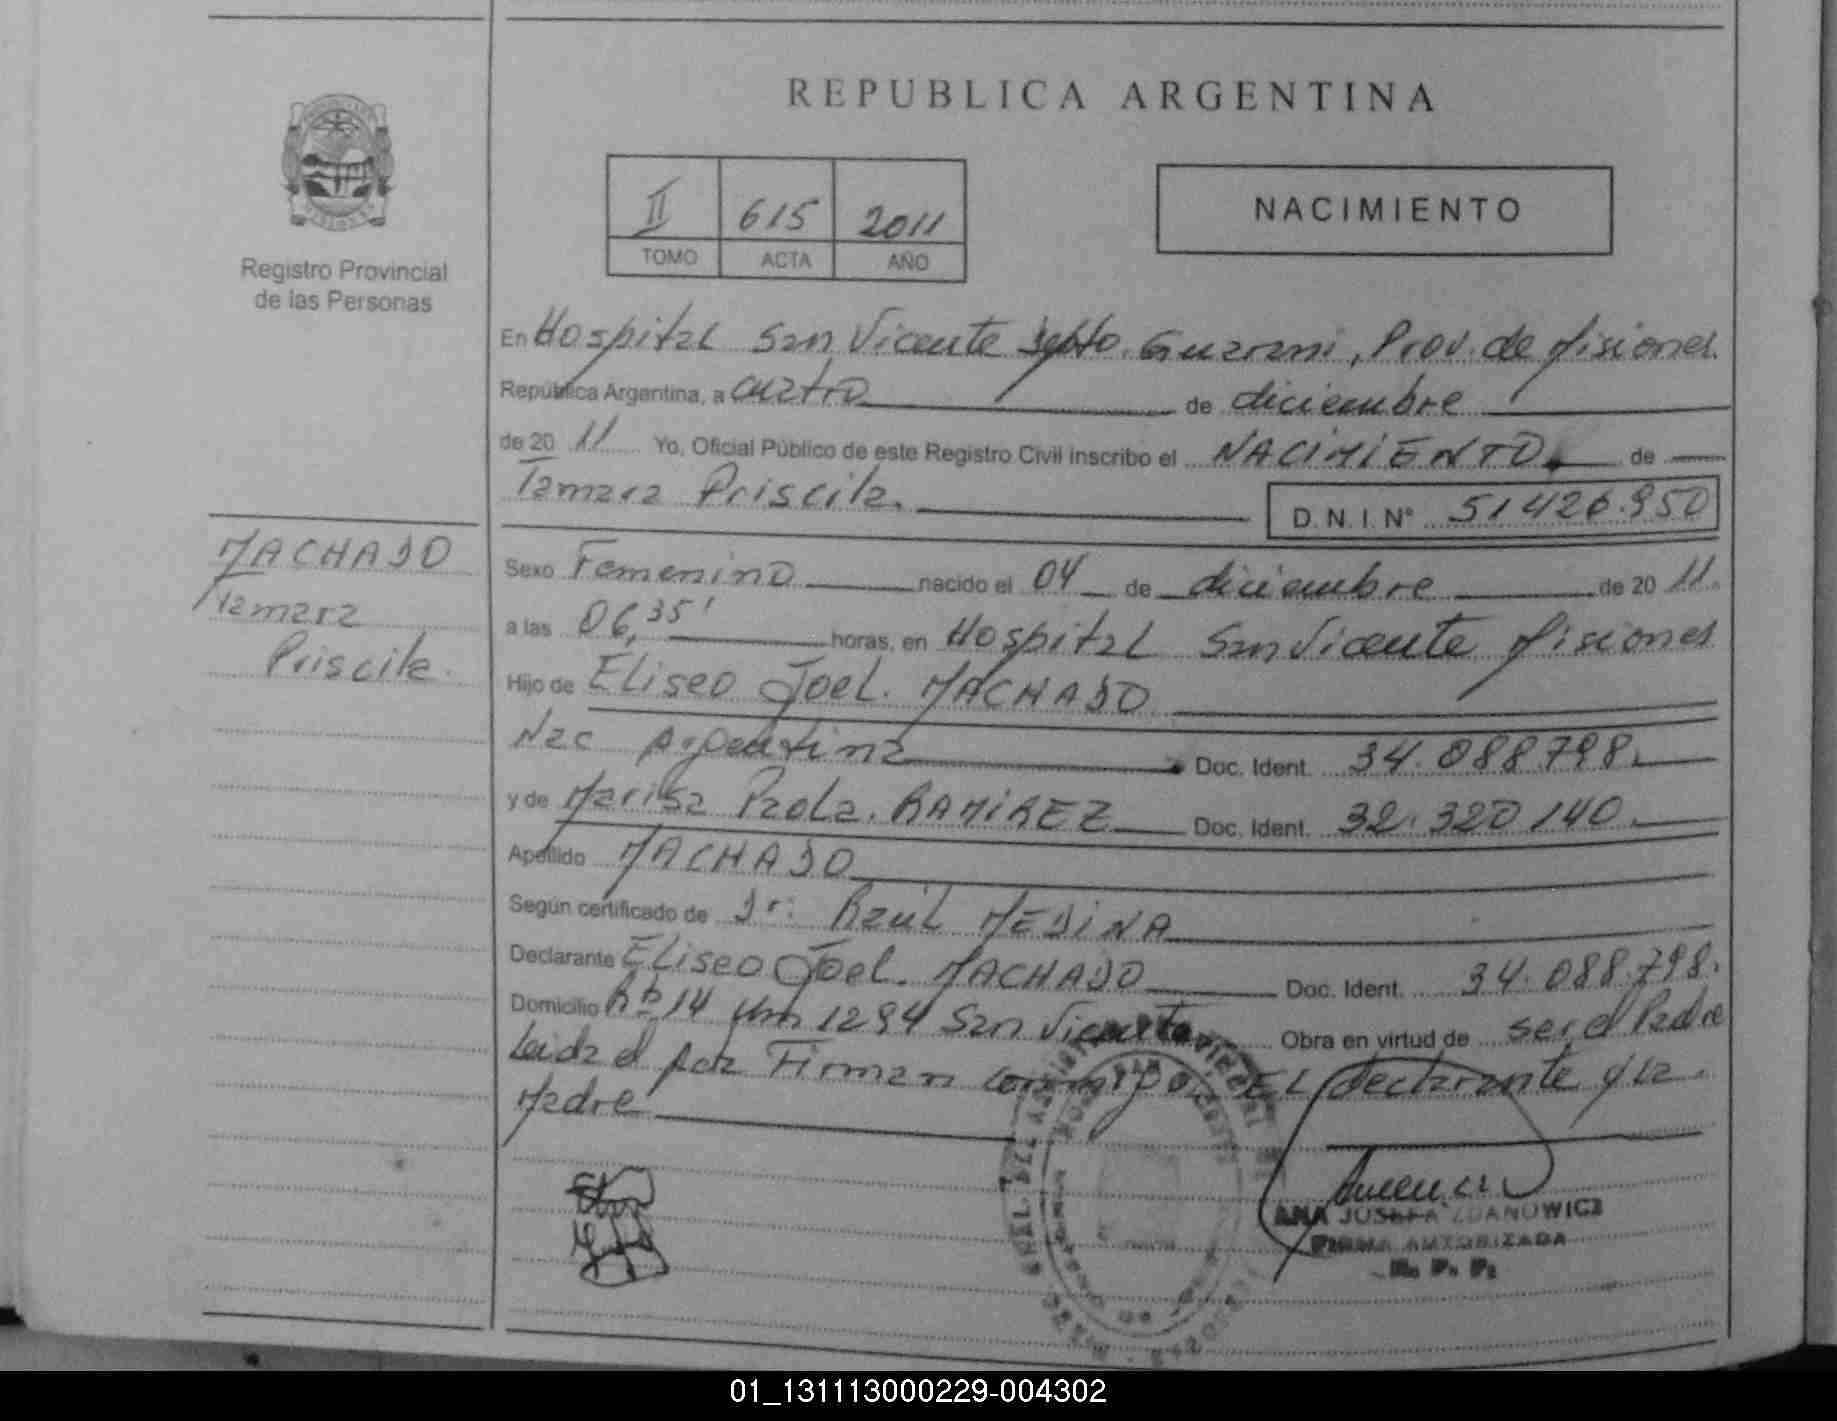 REPUBLICA ARGENTINA
II 615 2011
TOMO ACTA AÑO
NACIMIENTO
Registro Provincial
de las Personas
En Hospital San Vicente Depto. Guarani, Prov. de Misiones
República Argentina, a cuatro de diciembre
de 20 11 Yo, Oficial Público de este Registro Civil inscribo el NACIMIENTO de
Tamara Priscila. D.N.I. N° 51426.950
MACHADO
Tamara
Priscila.
Sexo Femenino nacido el 04 de diciembre de 20 11
a las 06,35' horas, en Hospital San Vicente Misiones
Hijo de Eliseo Joel. MACHADO
Nac Argentina Doc. Ident. 34.088798.
y de Marisa Paola. RAMIREZ Doc. Ident. 32.320.140.
Apellido MACHADO
Según certificado de Dr: Raúl MEDINA
Declarante Eliseo Joel. MACHADO Doc. Ident. 34.088.798.
Domicilio 14 Km 1294 San Vicente Obra en virtud de ser el Padre
Leida el Firman conmigo EL declarante y La
Madre
ANA JOSEFA ZDANOWICZ
FIRMA AUTORIZADA
01_131113000229-004302